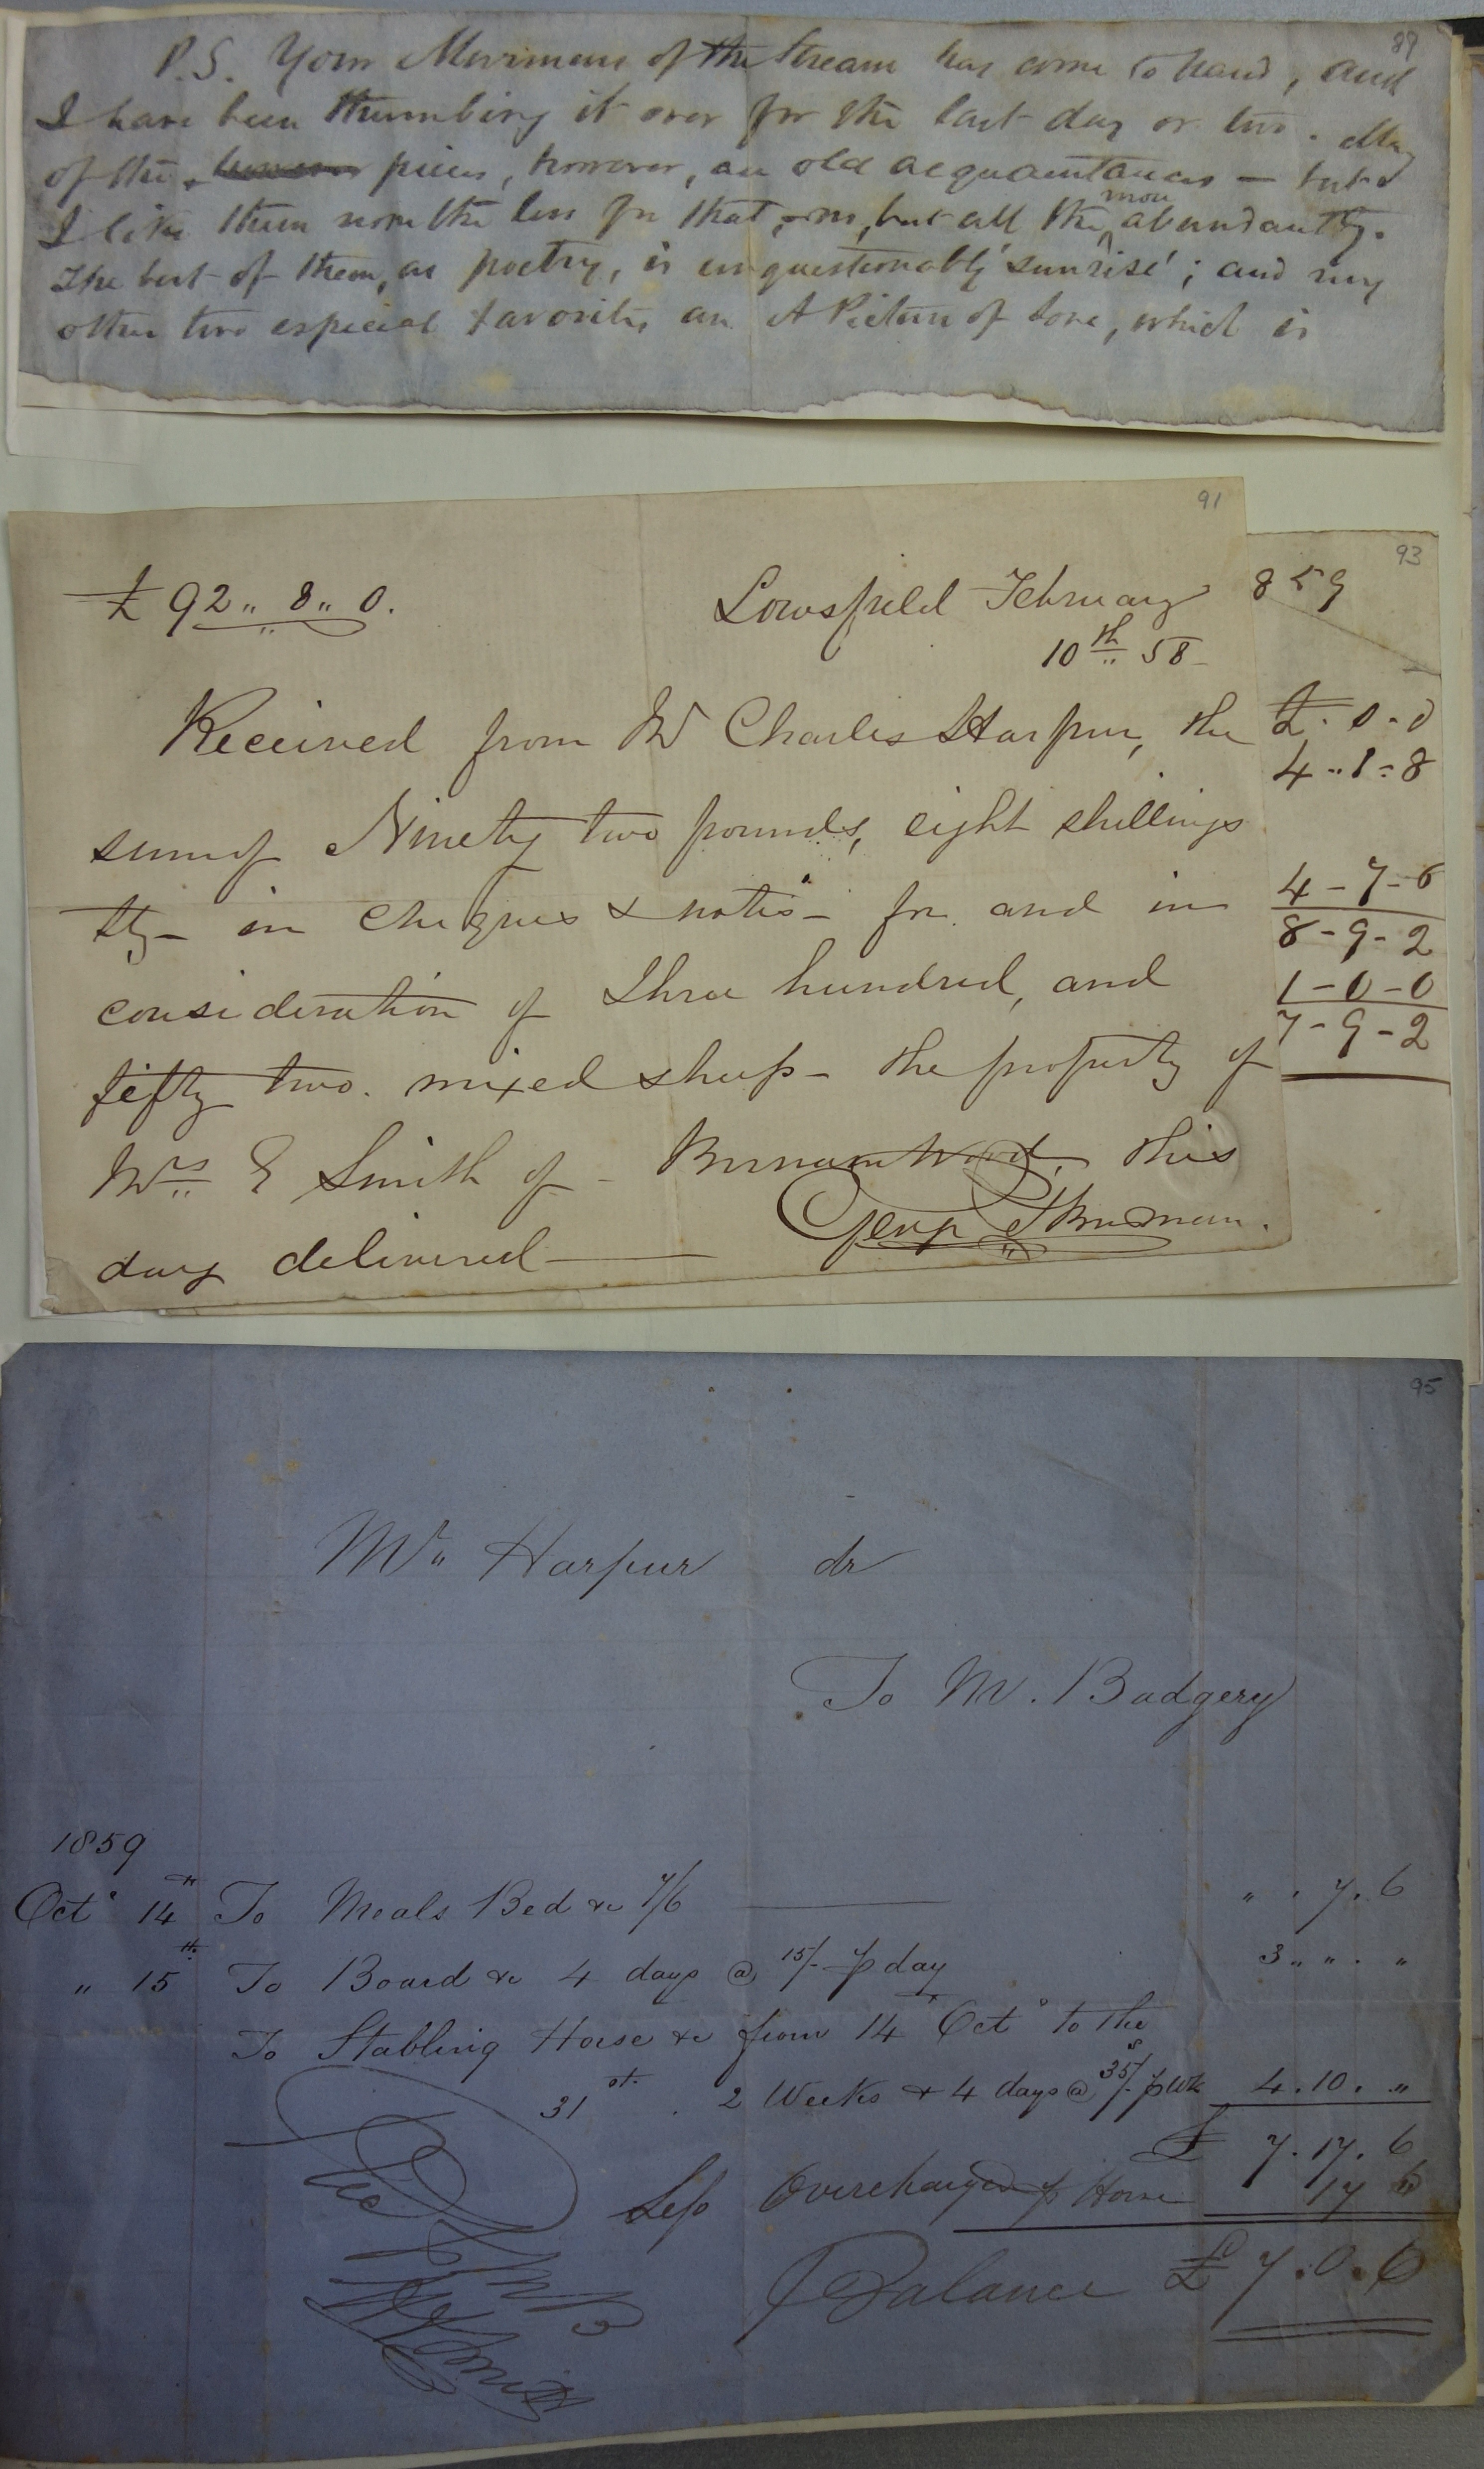 89
P.S. Your Murmurs of the Stream has come to hand, and
I have been thumbing it over for the last day or two. Many
of the however pieces, however, are old acquaintances — but
I like them none the less for that, no, but all the more abundantly.
The best of them, as poetry, is unquestionably 'Sunrise'; and my
other two especial favorites are A Picture of Love, which is
91
£ 92 ,, 8 ,, 0.
Lowsfield February
10th 58
Received from Mr Charles Harpur, the
sum of Ninety two pounds, eight shillings
stg – in cheques & notes – for and in
consideration of Three hundred, and
fifty two. mixed sheep – the property of
Mrs E Smith of – Burnam Wood, this
day delivered — George
93
859
£ . 0 - 0
4 - 1 - 8
4 - 7 - 6
8 - 9 - 2
1 - 0 - 0
7 - 9 - 2
95
Mr Harpur dr
To M. Badgery
1859
Oct 14th To Meals Bed &c 7/6 — " . 7 . 6
" 15th To Board &c 4 days @ 15/- p day 3 " " . "
To Stabling Horse &c from 14th Oct to the
31st . 2 Weeks & 4 days @ 35/- p wk 4 . 10 . "
£ 7 . 17 . 6
Less Overcharged p Horse 17
Balance £ 7 . 0 . 6